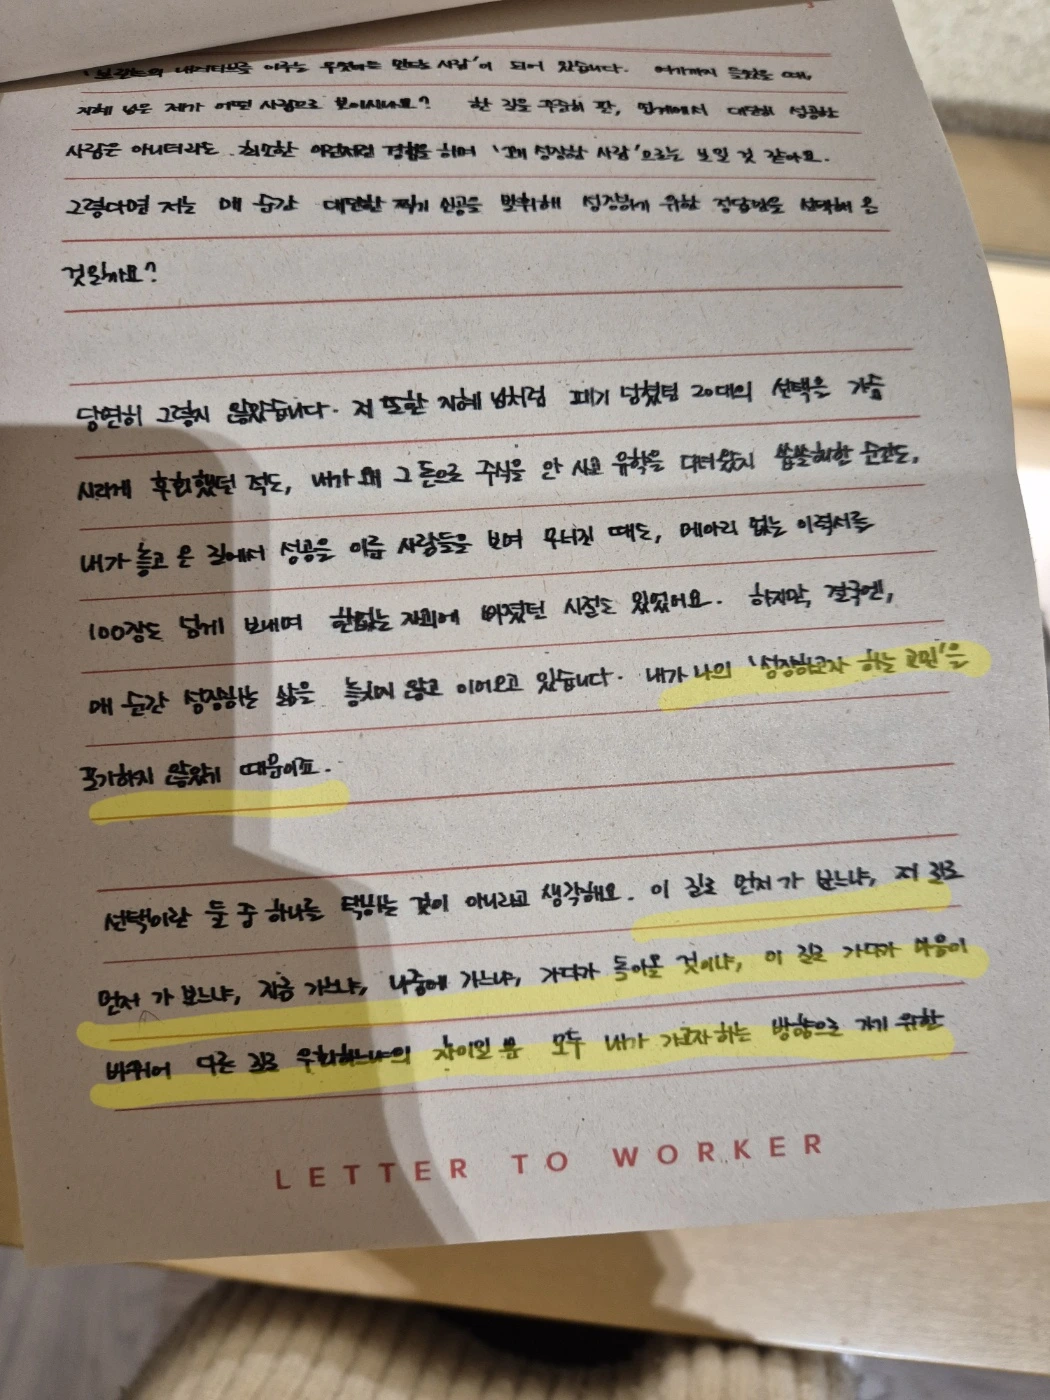 '브랜드의 내러티브를 이루는 무엇이든 만드는 사람'이 되어 있습니다. 여기까지 들었을 때,
지혜 님은 제가 어떤 사람으로 보이시나요? 한 길을 꾸준히 판, 업계에서 대단히 성공한
사람은 아니더라도 최소한 이런저런 경험을 하며 '꽤 성장한 사람'으로는 보일 것 같아요.
그렇다면 저는 매 순간 대단한 자기 인공을 발휘해 성장하기 위한 정답만을 선택해 온
것일까요?
당연히 그렇지 않았습니다. 저 또한 지혜 님처럼 패기 넘쳤던 20대의 선택을 가슴
시리게 후회했던 적도, 내가 왜 그 돈으로 주식을 안 사고 유학을 다녀왔지 씁쓸해한 순간도,
내가 놓고 온 길에서 성공을 이룬 사람들을 보며 무너진 때도, 메아리 없는 이력서를
100장도 넘게 보내며 한없는 자괴에 빠졌던 시절도 있었어요. 하지만, 결국엔,
매 순간 성장하는 삶을 놓치지 않고 이어오고 있습니다. 내가 나의 '성장하고자 하는 고민'을
포기하지 않았기 때문이죠.
선택이란 둘 중 하나를 택하는 것이 아니라고 생각해요. 이 길로 먼저 가 보느냐, 저 길로
먼저 가 보느냐, 지금 가느냐, 나중에 가느냐, 가다가 돌아올 것이냐, 이 길로 가다가 마음이
바뀌어 다른 길로 우회하느냐의 차이일 뿐 모두 내가 가고자 하는 방향으로 가기 위한
LETTER TO WORKER